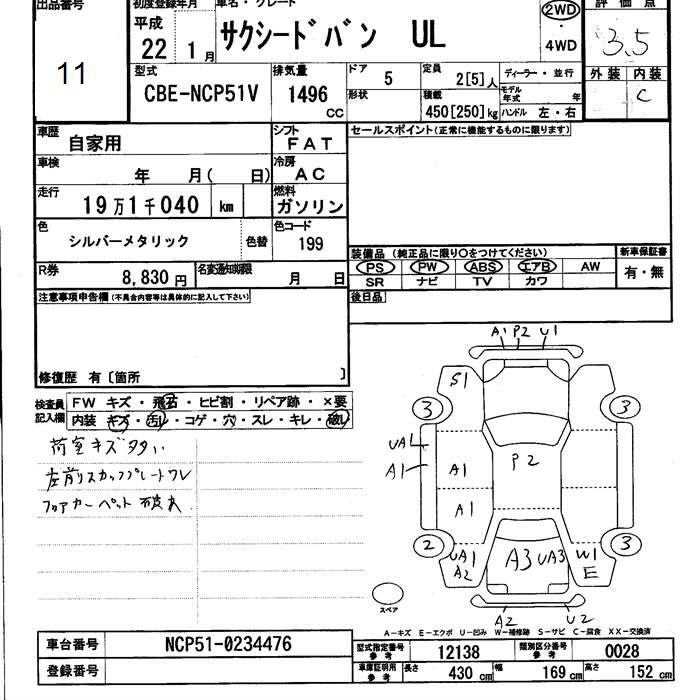 出品番号 11
初度登録年月 平成 22年 1月
車名・グレード サクシードバン UL
2WD・4WD
評価点 3.5
型式 CBE-NCP51V
排気量 1496 cc
ドア 5
形状
定員 2[5]人
積載 450[250]kg
ディーラー・並行
モデル年式 年
ハンドル 左・右
外装 内装 C
車歴 自家用
シフト FAT
車検 年 月( 日)
冷房 AC
走行 19万1千040 km
燃料 ガソリン
色 シルバーメタリック 色替
色コード 199
R券 8,830円
名変通知期限 月 日
セールスポイント(正常に機能するものに限ります)
装備品 (純正品に限り○をつけてください)
PS PW ABS エアB AW
SR ナビ TV カワ
新車保証書 有・無
後日品
注意事項申告欄(不具合内容等は具体的に記入して下さい)
修復歴 有〔箇所 〕
検査員記入欄
FW キズ・飛石・ヒビ割・リペア跡・×要
内装 キズ・汚レ・コゲ・穴・スレ・キレ・破レ
荷室キズ多い
左前リスカッフプレートワレ
フロアカーペット 破れ
A1 P2 U1
S1
3 3
UA1
A1 A1 P2
A1
2 3
UA1 A2 A3 UA3 W1 E
スペア
A2 U2
A-キズ E-エクボ U-凹み W-補修跡 S-サビ C-腐食 XX-交換済
車台番号 NCP51-0234476
登録番号
型式指定番号 参考 12138
類別区分番号 参考 0028
車庫証明用 参考 長さ 430 cm 幅 169 cm 高さ 152 cm